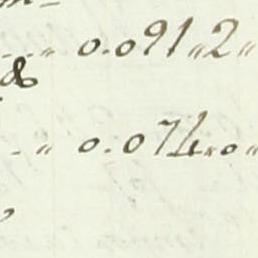 „ 0.091„2„
&
„ 0.074„0„